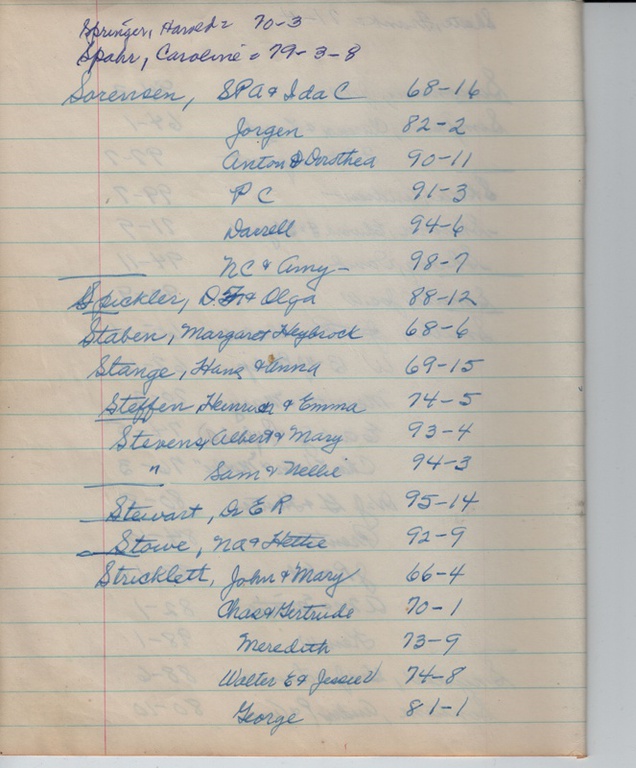 Springer, Harold = 70-3
Spahr, Caroline = 79-3-8
Sorensen, SPA & Ida C 68-16
Jorgen 82-2
Anton & Dorothea 90-11
P C 91-3
Darrell 94-6
NC & Amy - 98-7
Spickler, D. F. & Olga 88-12
Staben, Margaret Heybrock 68-6
Stange, Hans & Anna 69-15
Steffen, Heinrich & Emma 74-5
Stevens, Albert & Mary 93-4
" Sam & Nellie 94-3
Stewart, Dr E R 95-14
Stowe, NA & Hettie 92-9
Stricklett, John & Mary 66-4
Chas & Gertrude 70-1
Meredith 73-9
Walter E & Jessie 74-8
George 81-1